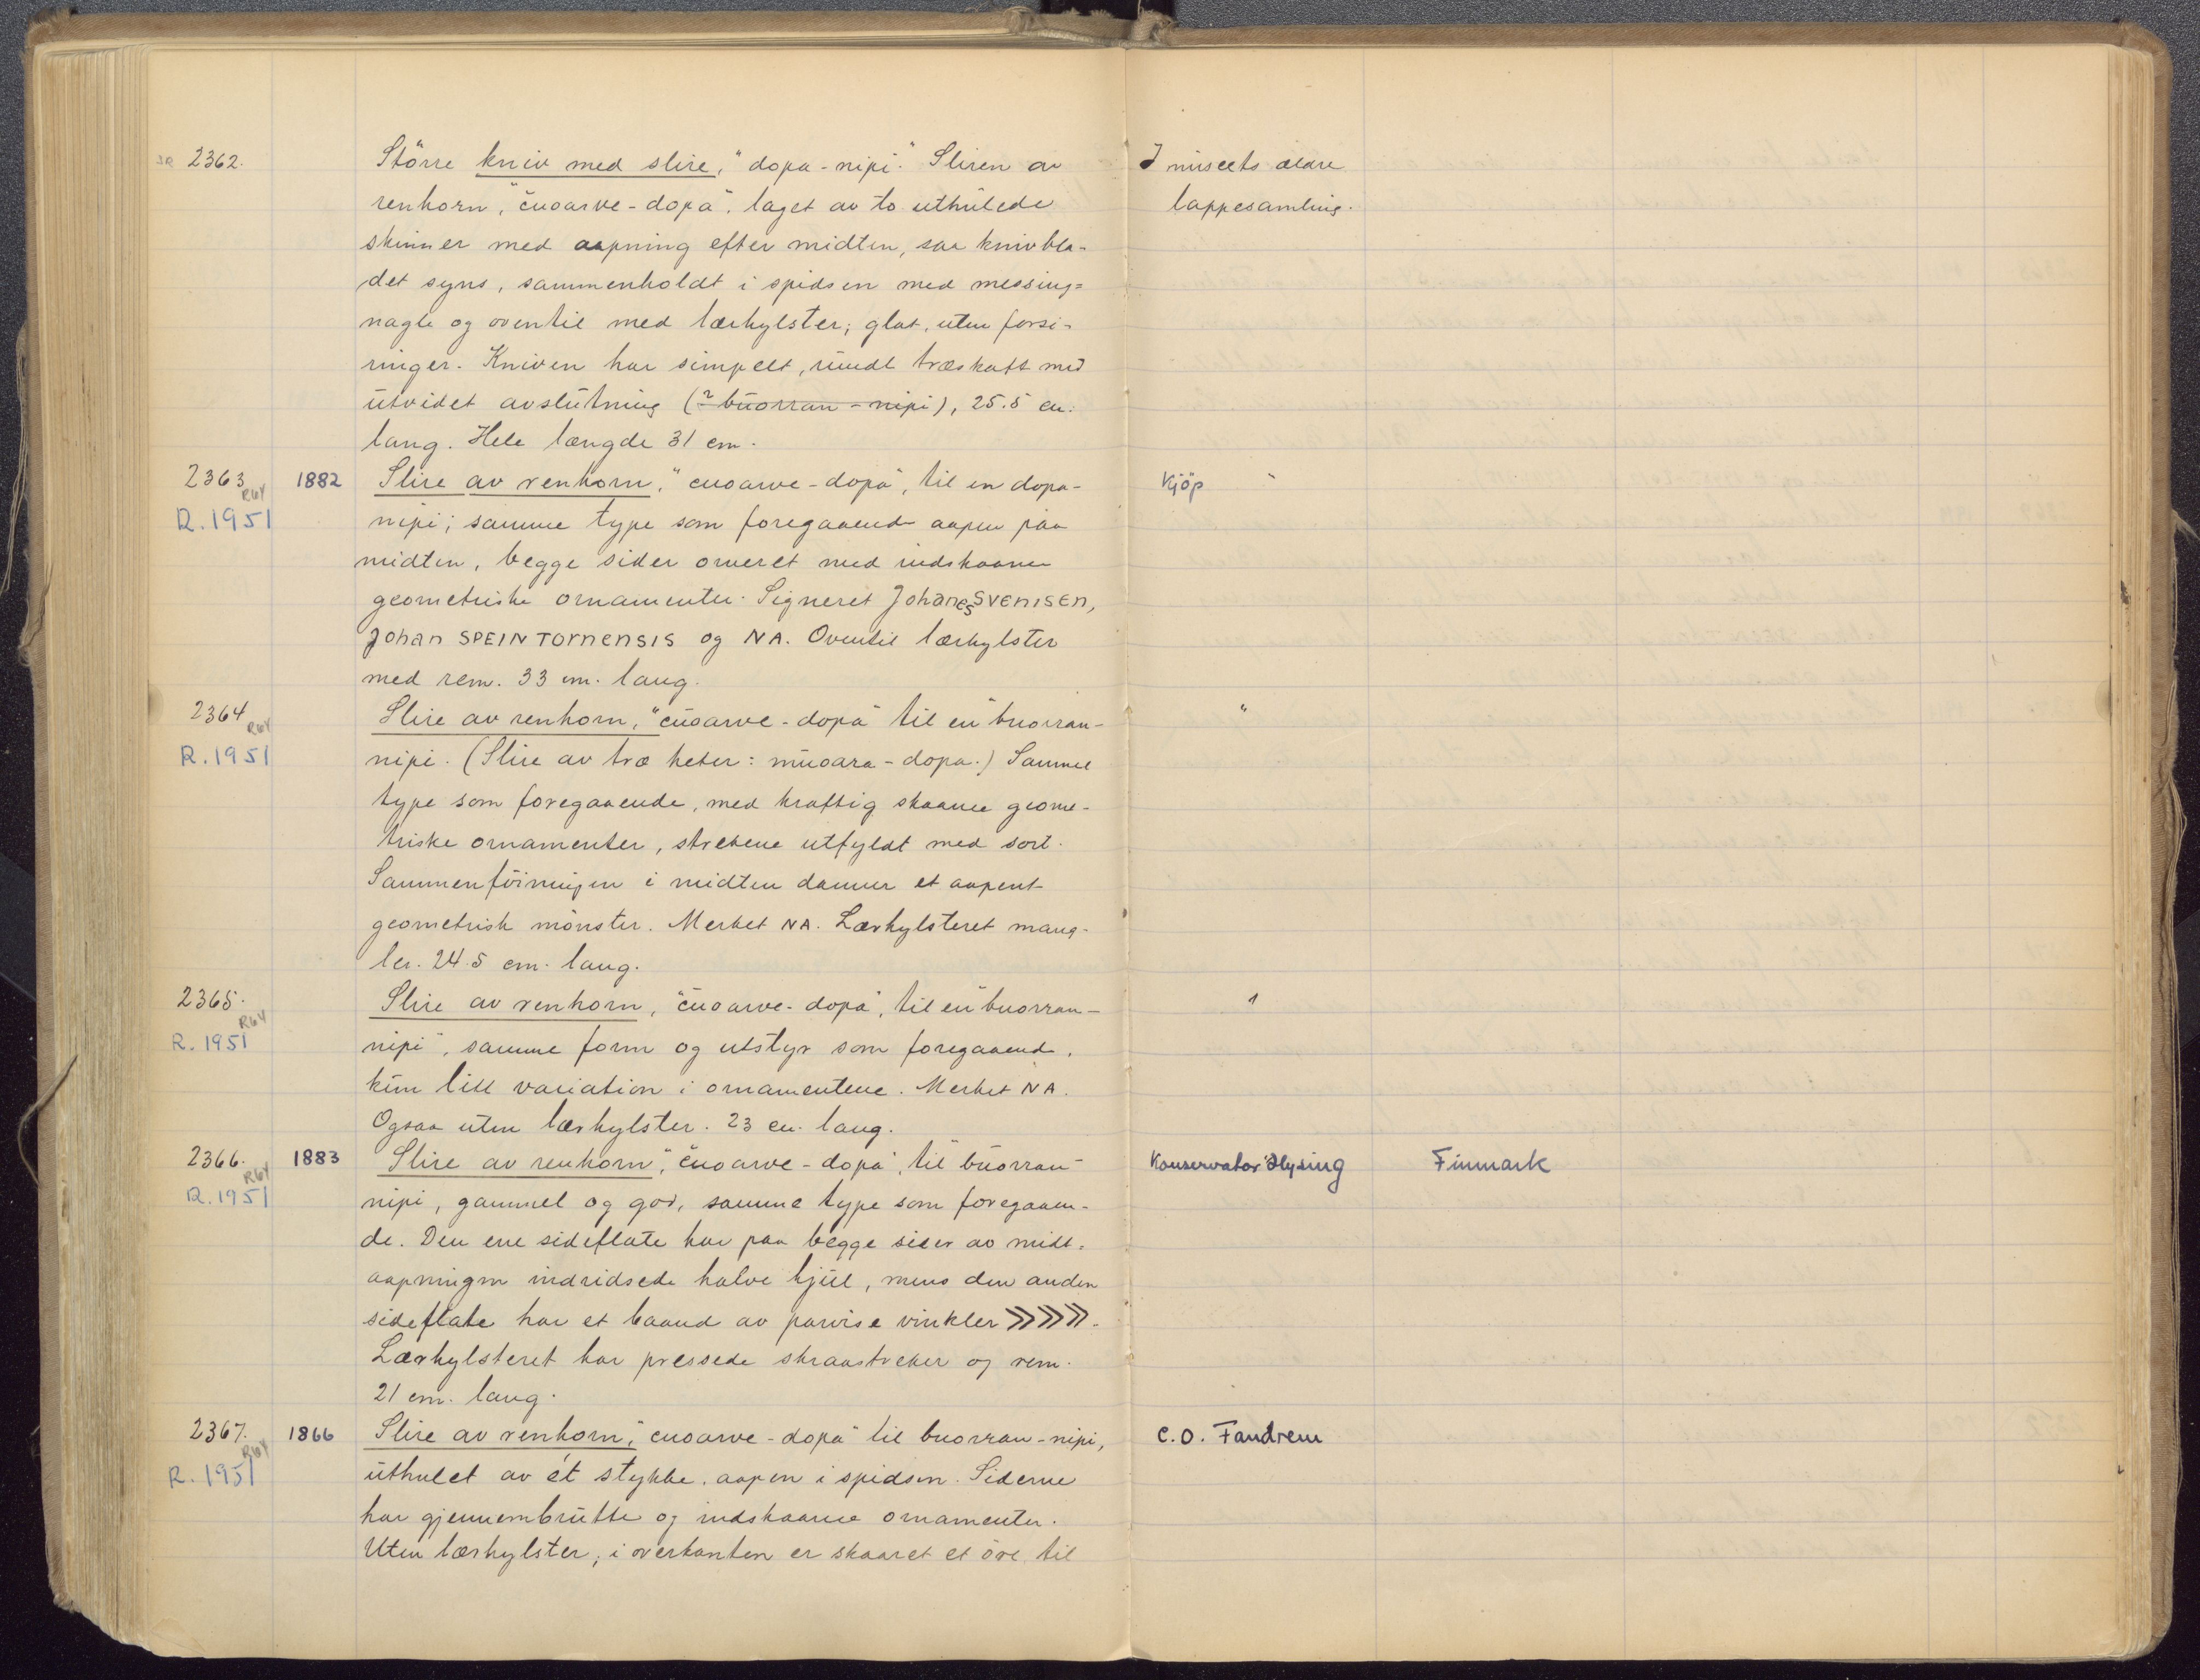 2362. Större kniv med slire, "dopa-nipi". Sliren av I museets ældre
renhorn, "čuoarve-dopa", laget av to uthulede lappesamling.
skinner med aapning efter midten, saa knivbla-
det syns, sammenholdt i spidsen med messing=
nagle og oventil med lærhylster; glat, uten forsi-
ringer. Kniven har simpelt, rundt træskaft med
utvidet avslutning (? buorran-nipi), 25.5 cm.
lang. Hele længde 31 cm.
2363 R64 1882 Slire av renhorn, "cuoarve-dopa", til en dopa- Kjöp "
R.1951 nipi; samme type som foregaaende aapen paa
midten, begge sider orneret med indskaarne
geometriske ornamenter. Signeret Johanes SVENISEN,
Johan SPEIN TORNENSIS og NA. Oventil lærhylster
med rem. 33 cm. lang.
2364 R64 Slire av renhorn, "cuoarve-dopa" til en "buorran- "
R.1951 nipi. (Slire av træ heter: muoara-dopa.) Samme
type som foregaaende, med kraftig skaarne geome-
triske ornamenter, strekene utfyldt med sort.
Sammenföiningen i midten danner et aapent
geometrisk mönster. Merket NA. Lærhylsteret mang-
ler. 24.5 cm. lang.
2365. R64 Slire av renhorn, "čuoarve-dopa", til en "buorran- "
R.1951 nipi", samme form og utstyr som foregaaende,
kun litt variation i ornamentene. Merket NA.
Ogsaa uten lærhylster. 23 cm. lang.
2366. R64 1883 Slire av renhorn, "čuoarve-dopa", til "buorran- Konservator Hysing Finmark
R.1951 nipi, gammel og god, samme type som foregaaen-
de. Den ene sideflate har paa begge sider av midt-
aapningen indridsede halve hjul, mens den anden
sideflate har et baand av parvise vinkler »»».
Lærhylsteret har pressede skraastreker og rem.
21 cm. lang.
2367. R64 1866 Slire av renhorn, "cuoarve-dopa" til buorran-nipi, C.O. Fandrem
R.1951 uthulet av ét stykke, aapen i spidsen. Siderne
har gjennembrutte og indskaarne ornamenter.
Uten lærhylster; i overkanten er skaaret et öre til